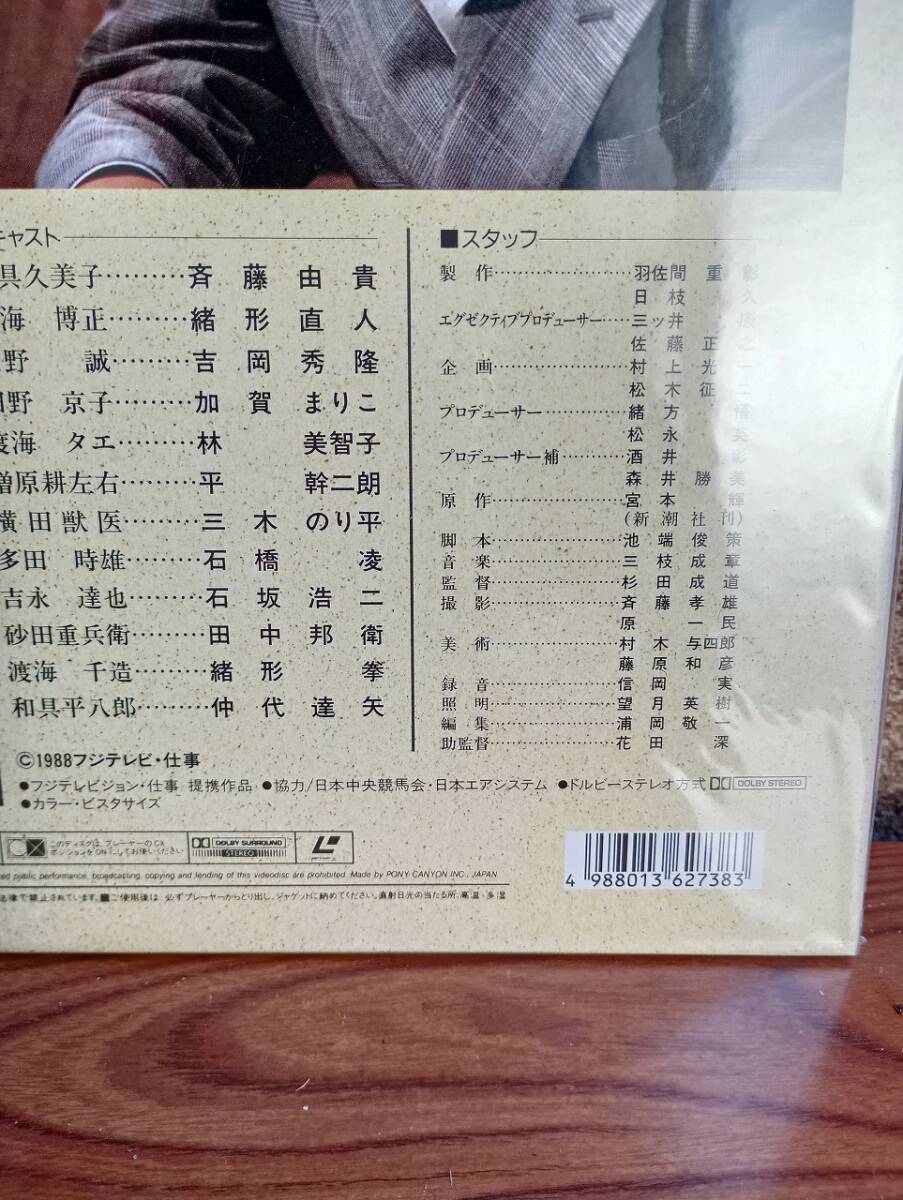 キャスト
具久美子………斉藤由貴
海 博正………緒形直人
野 誠………吉岡秀隆
野 京子………加賀まりこ
渡海 タエ………林 美智子
増原耕左右………平 幹二朗
横田獣医………三木のり平
多田 時雄………石橋 凌
吉永 達也………石坂浩二
砂田重兵衛………田中邦衛
渡海 千造………緒形 拳
和具平八郎………仲代達矢
■スタッフ
製作………羽佐間重彰
日枝 久
エグゼクティブプロデューサー………三ッ井 康
佐藤正之
企画………村上光一
松木征二
プロデューサー………緒方 悟
松永 英
プロデューサー補………酒井 彰
森井勝美
原作………宮本 輝
(新潮社刊)
脚本………池端俊策
音楽………三枝成章
監督………杉田成道
撮影………斉藤孝雄
原 一民
美術………村木与四郎
藤原和彦
録音………信岡 実
照明………望月英樹
編集………浦岡敬一
助監督………花田 深
©1988フジテレビ・仕事
●フジテレビジョン・仕事 提携作品 ●協力/日本中央競馬会・日本エアシステム ●ドルビーステレオ方式 DOLBY STEREO
●カラー・ビスタサイズ
CX このディスクは、プレーヤーのCX
ポジションをONにしてお使いください
DOLBY SURROUND
STEREO
4 988013 627383
public performance, broadcasting, copying and lending of this videodisc are prohibited. Made by PONY CANYON INC., JAPAN
法律で禁止されています。■ご使用後は、必ずプレーヤーからとり出し、ジャケットに納めてください。直射日光の当たる所、高温・多湿